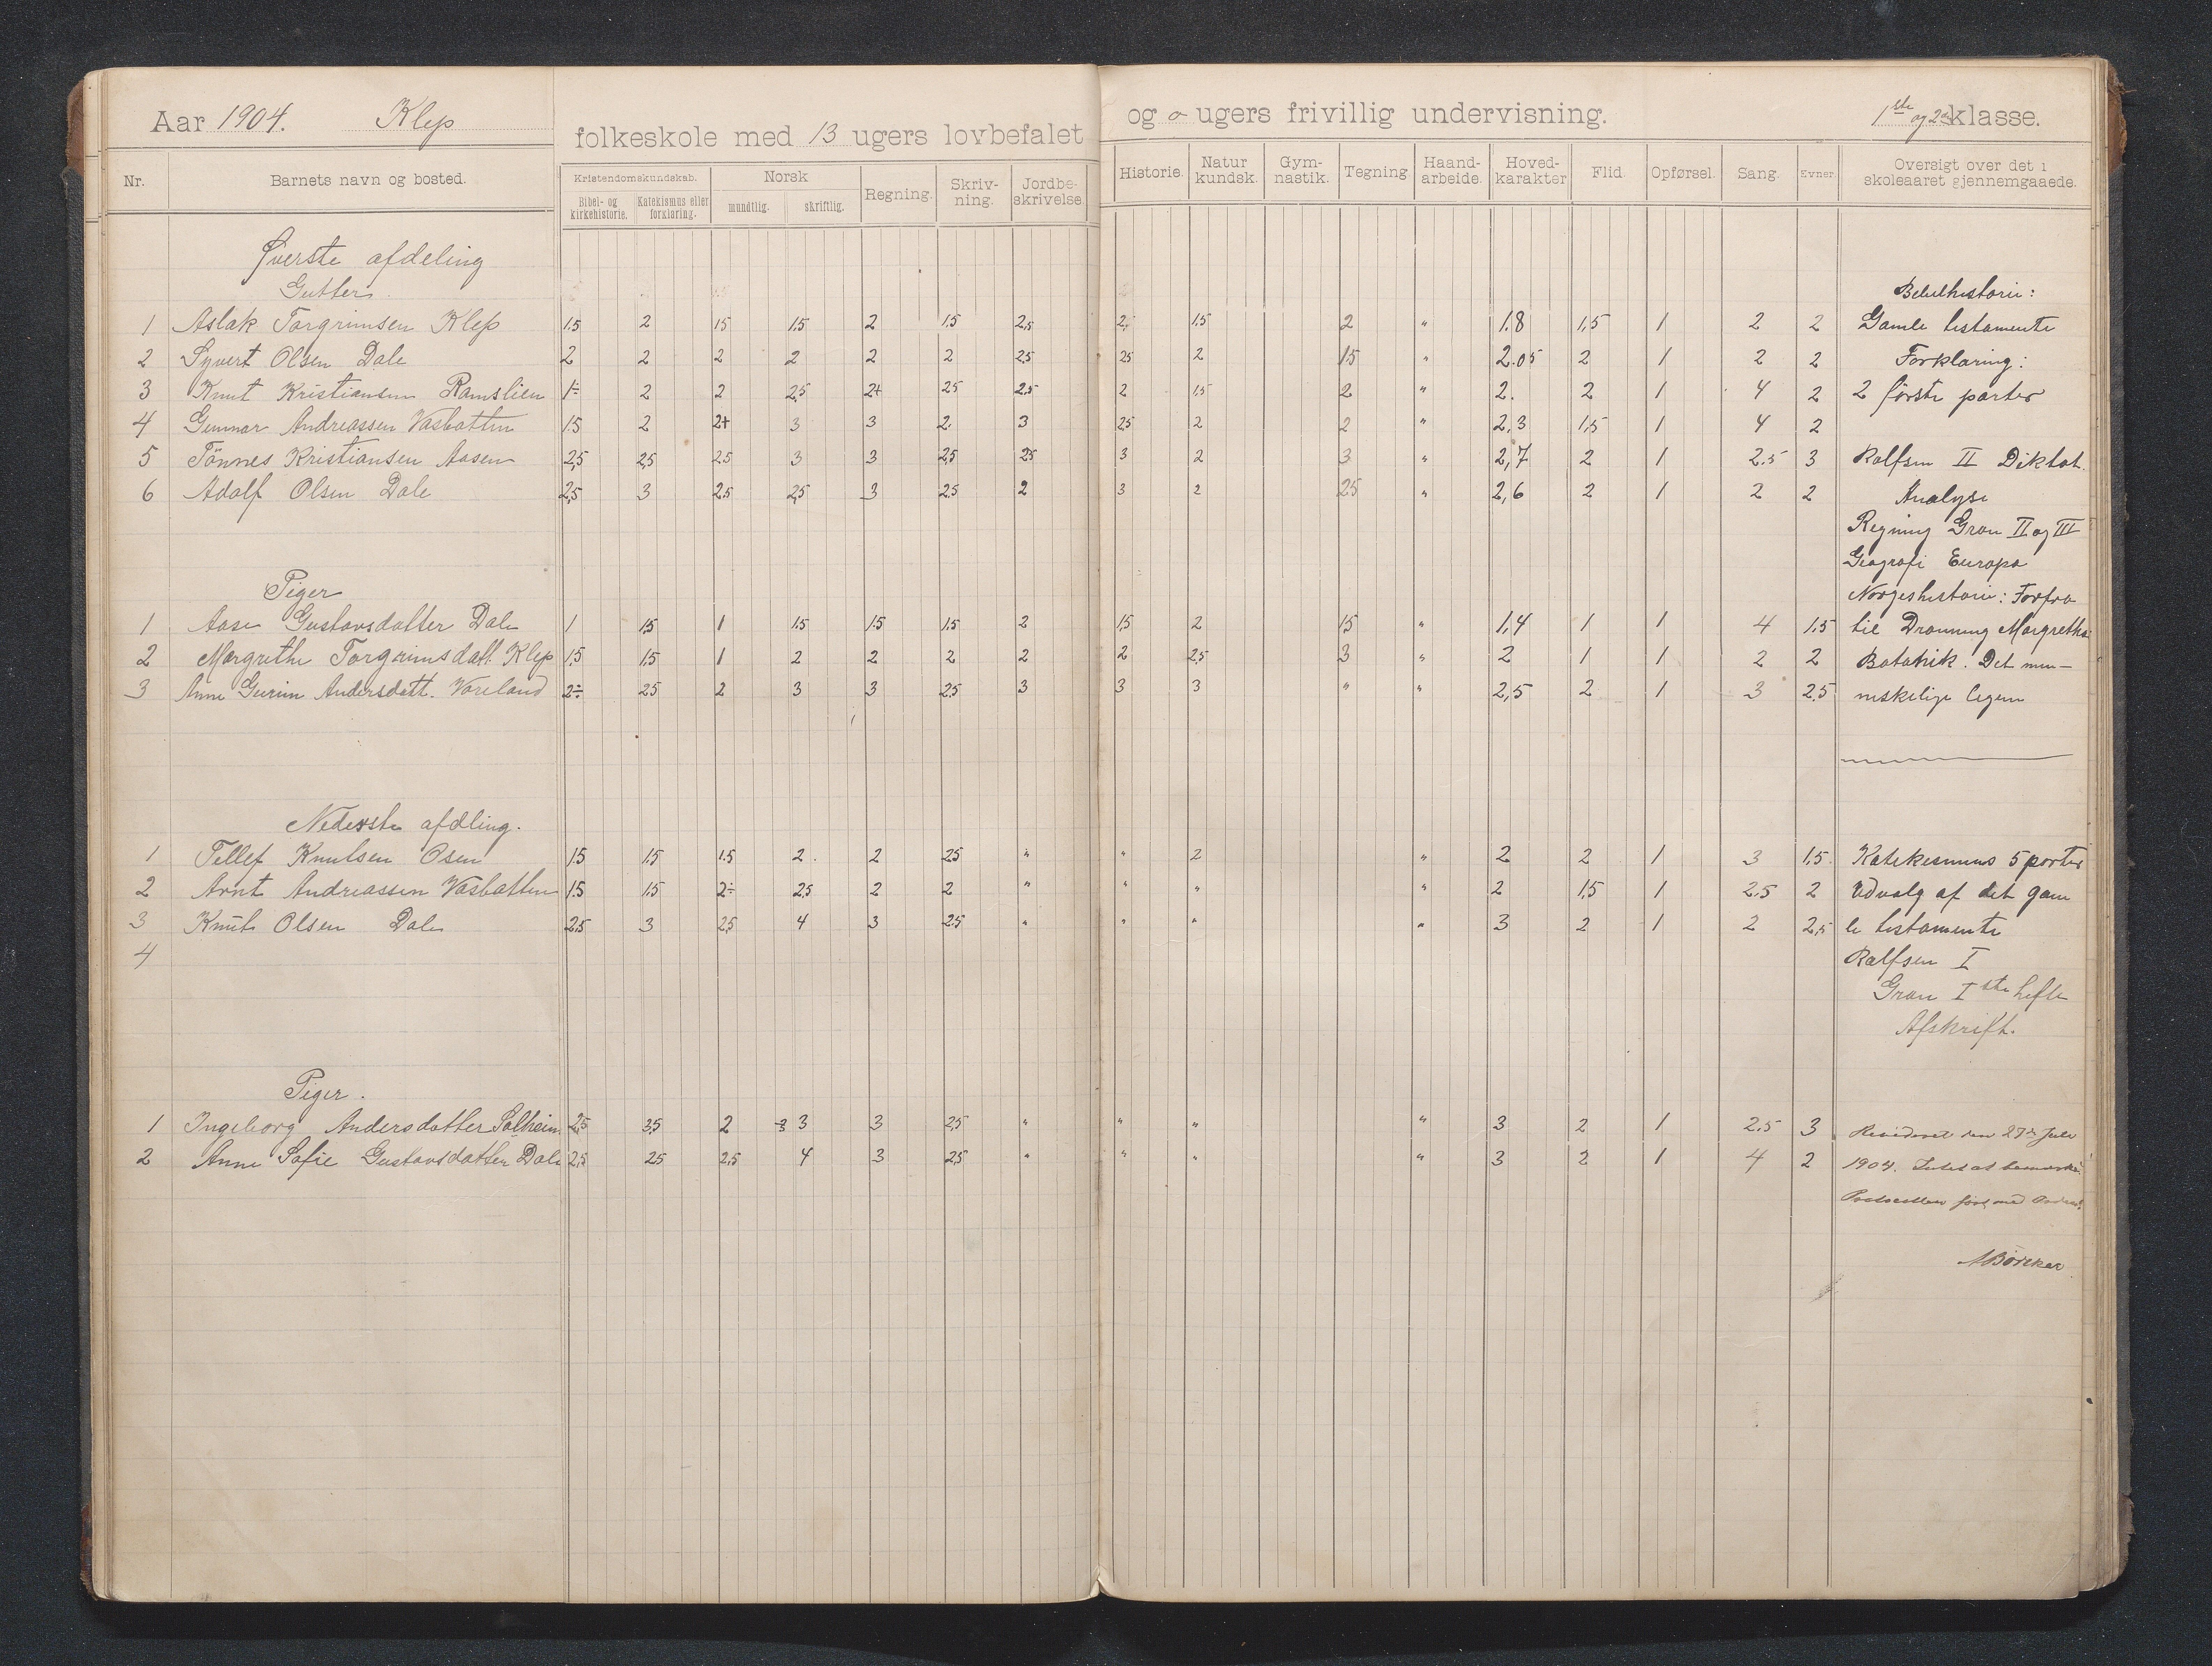 Aar 1904. Klep
folkeskole med 13 ugers lovbefalet
og o ugers frivillig undervisning. 1ste og 2den klasse.
Nr. Barnets navn og bosted. Kristendomskundskab. Bibel- og kirkehistorie. Katekismus eller forklaring. Norsk mundtlig. skriftlig. Regning. Skriv-ning. Jordbe-skrivelse. Historie. Natur kundsk. Gym-nastik. Tegning Haand-arbeide. Hoved-karakter Flid. Opførsel. Sang. Evner. Oversigt over det i skoleaaret gjennemgaaede.
Øverste afdeling
Gutter. Bibelhistorie:
1 Aslak Torgrimsen Klep 1.5 2 15 1.5 2 1.5 2,5 2, 1.5 2 " 1.8 1,5 1 2 2 Gamle testamente
2 Syvert Olsen Dale 2 2 2 2 2 2 25 25 2 15 " 2.05 2 1 2 2 Forklaring:
3 Knut Kristiansen Ramslien 1÷ 2 2 2,5 2+ 25 2,5 2 1,5 2 " 2. 2 1 4 2 2 første parter
4 Gunnar Andreassen Vasbotten 15 2 2+ 3 3 2. 3 25 2 2 " 2,3 1,5 1 4 2
5 Tönnes Kristiansen Aasen 2,5 25 25 3 3 25 25 3 2 3 " 2,7 2 1 2.5 3 Rolfsen II Diktat
6 Adolf Olsen Dale 2,5 3 25 25 3 25 2 3 2 25 " 2,6 2 1 2 2 Analyse
Regning Gran II og III
Geografi Europa
Piger Norgeshistorie: Forfra
1 Aase Gustavsdatter Dale 1 1.5 1 1.5 1.5 1.5 2 1,5 2 15 " 1,4 1 1 4 1.5 til Dronning Margrethe
2 Margrethe Torgrimsdatt. Klep 1.5 1.5 1 2 2 2 2 2 2,5 3 " 2 1 1 2 2 Botanik. Det men-
3 Anne Gurine Andersdatt. Voreland 2÷ 25 2 3 3 2,5 3 3 3 " " 2,5 2 1 3 2.5 neskelige legem
Nederste afdling.
1 Tellef Knutsen Osen 15 1.5 1.5 2. 2 25 " " 2 " 2 2 1 3 1,5. Katekismus 5 parter
2 Arnt Andreassen Vasbotten 1.5 1.5 2÷ 2,5 2 2 " " " " 2 1,5 1 2.5 2 Udvalg af det gam
3 Knut Olsen Dale 2,5 3 2,5 4 3 2.5 " " " " 3 2 1 2 2,5 le testamente
4 Rolfsen I
Gran I ste hefte
Afskrift.
Piger.
1 Ingeborg Andersdatter Solheim 2,5 3,5 2 3 3 2,5 " " " " 3 2 1 2.5 3 Revideret den 27de Juli
2 Anne Sofie Gustavsdatter Dale 2,5 25 2,5 4 3 2,5 " " " " 3 2 1 4 2 1904. Intet at bemærke.
Protocollen ført med Orden.